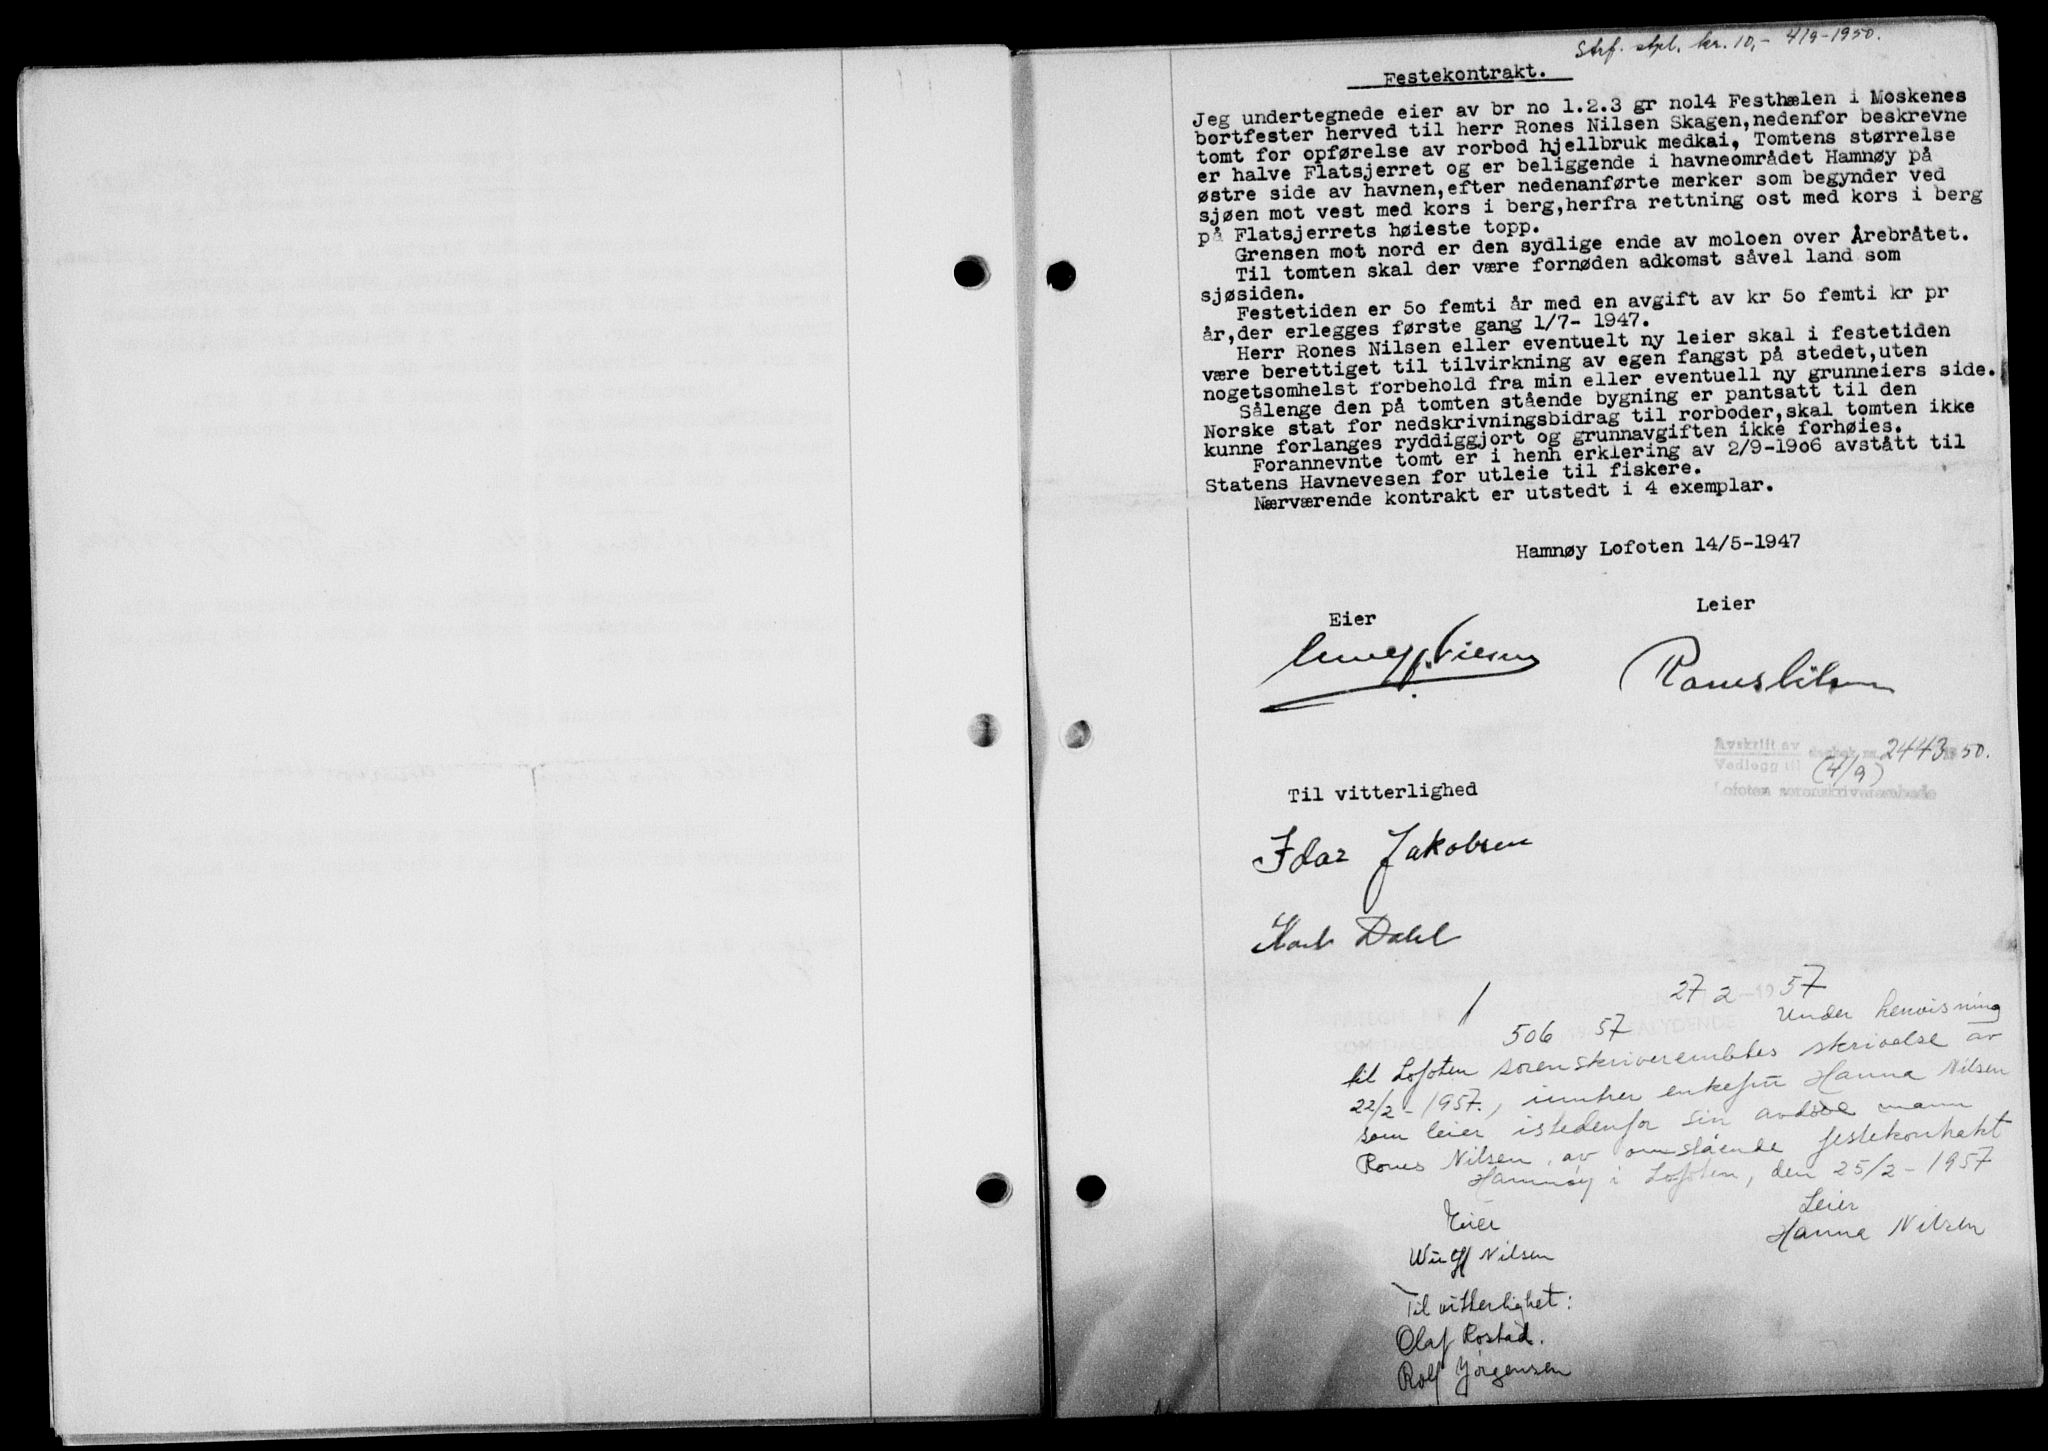 Strf. stpl. kr. 10,- 4/9-1950.
Festekontrakt.
Jeg undertegnede eier av br no 1.2.3 gr no14 Festhælen i Moskenes
bortfester herved til herr Rones Nilsen Skagen,nedenfor beskrevne
tomt for opførelse av rorbod hjellbruk medkai, Tomtens størrelse
er halve Flatsjerret og er beliggende i havneområdet Hamnøy på
østre side av havnen,efter nedenanførte merker som begynder ved
sjøen mot vest med kors i berg,herfra rettning ost med kors i berg
på Flatsjerrets høieste topp.
Grensen mot nord er den sydlige ende av moloen over Årebråtet.
Til tomten skal der være fornøden adkomst såvel land som
sjøsiden.
Festetiden er 5o femti år med en avgift av kr 5o femti kr pr
år,der erlegges første gang 1/7- 1947.
Herr Rones Nilsen eller eventuelt ny leier skal i festetiden
være berettiget til tilvirkning av egen fangst på stedet,uten
nogetsomhelst forbehold fra min eller eventuell ny grunneiers side.
Sålenge den på tomten stående bygning er pantsatt til den
Norske stat for nedskrivningsbidrag til rorboder,skal tomten ikke
kunne forlanges ryddiggjort og grunnavgiften ikke forhøies.
Forannevnte tomt er i henh erklering av 2/9-19o6 avstått til
Statens Havnevesen for utleie til fiskere.
Nærværende kontrakt er utstedt i 4 exemplar.
Hamnøy Lofoten 14/5-1947
Eier
Leier
Rones Nilsen
Avskrift av
Vedlegg til dagbok nr. 2443 19 50.
(4/9)
Lofoten sorenskriverembede
Til vitterlighed
Idar Jakobsen
Karl Dahl
27 2 -19 57
506 57 Under henvisning
til Lofoten sorenskriverembetes skrivelse av
22/2 - 1957., inntrer enkefru Hanna Nilsen
som leier istedenfor sin avdøde mann
Rones Nilsen, av omstående festekontrakt
Hamnøy i Lofoten, den 25/2 - 1957
Eier
Leier
Wulff Nilsen
Hanna Nilsen
Til vitterlighet:
Olaf Rostad.
Rolf Jørgensen